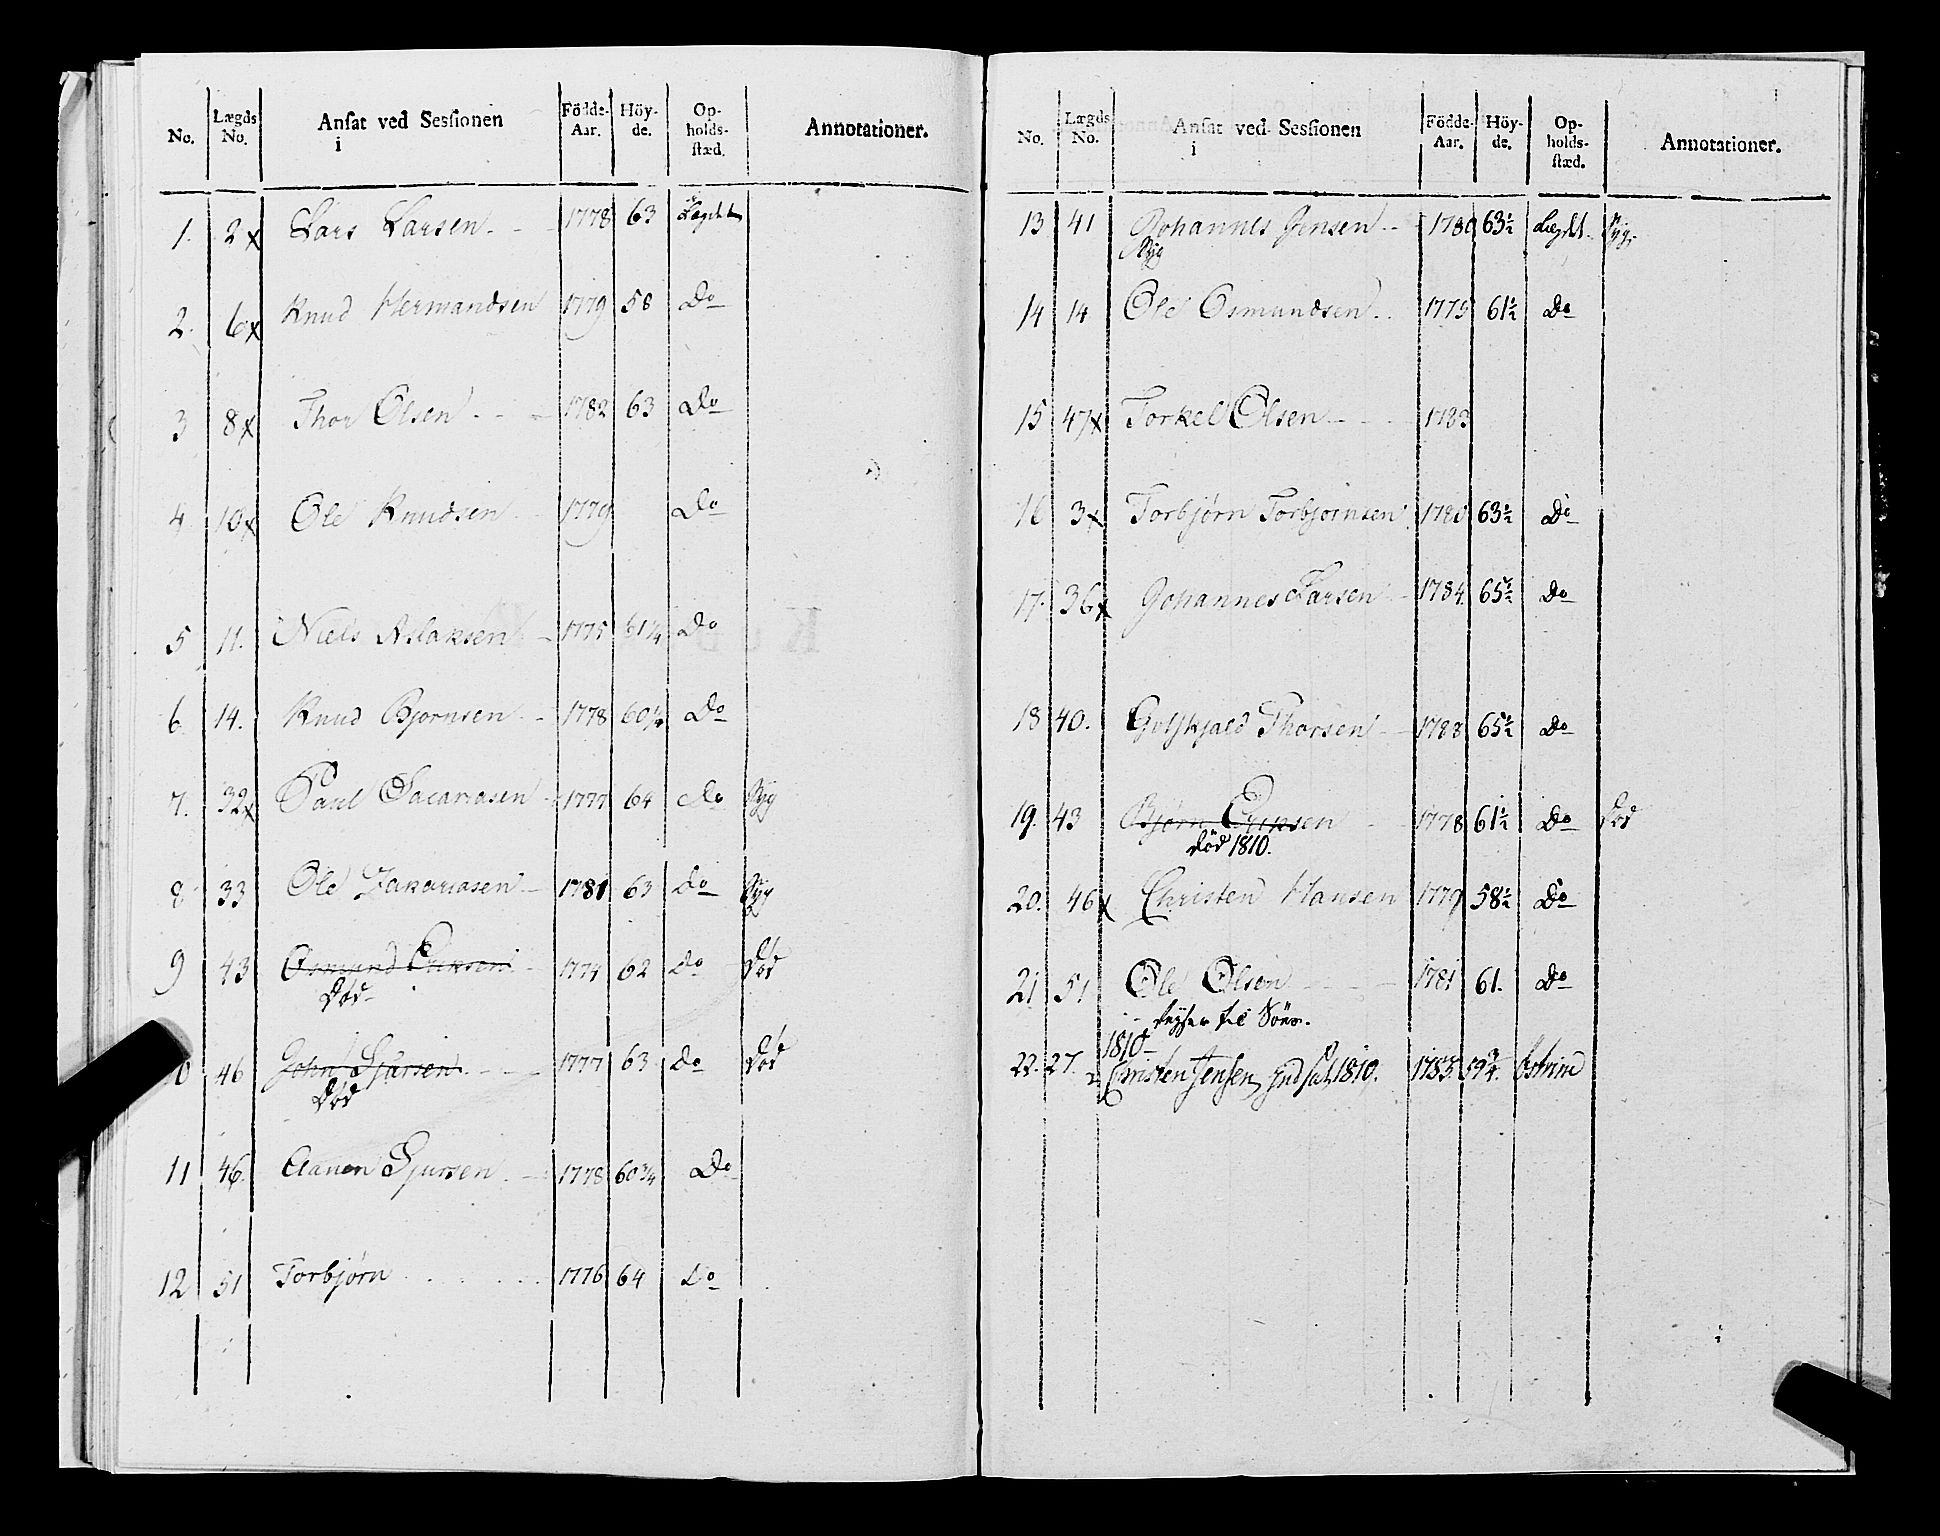 No. Lægds No. Ansat ved Sessionen i Födde-Aar. Höy-de. Op-holds-stæd. Annotationer.
1. 2x Lars Larsen 1778 63 Lægdet
2. 6x Knud Hermandsen 1779 58 Do
3 8x Thor Olsen 1782 63 Do
4 10x Ole Knudsen 1779 Do
5 11. Niels Aslaksen 1775 61 1/4 Do
6 14. Knud Bjornsen 1778 60 1/2 Do
7. 32x Paul Sacariasen 1777 64 Do Syg
8 33 Ole Zakariasen 1781 63 Do Syg
9 43 Osmund Eriksen 1774 62 Do Død
Død
10 46 John Sjursen 1777 63 Do Død
Død
11 46. Aanen Sjursen 1778 60 3/4 Do
12 51 Torbjørn 1776 64 Do
No. Lægds No. Ansat ved Sessionen i Födde-Aar. Höy-de. Op-holds-stæd. Annotationer.
13 41 Johannes Jensen 1780 63 1/2 Lægdet Syg
Syg
14 14 Ole Osmundsen 1775 61 1/2 Do
15 47x Torkel Olsen 1783
16 3x Torbjørn Torbjornsen 63 1/2 Do
17. 36x Johannes Larsen 1784 65 1/2 Do
18 40. Thorsen 1788 65 1/2 Do
19. 43 Bjørn Eriksen 1778 61 1/2 Do Død
död 1810.
20. 46x Christen Hansen 1779 58 1/2 Do
21 51 Ole Olsen 1781 61. Do
til Söes.
1810
22. 27. Christen Jensen Indsat 1810. 1783. 59 3/4.